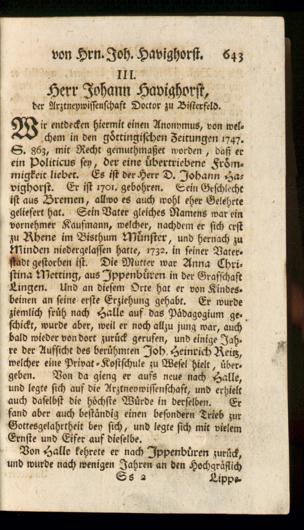 von Hrn. Joh. Havighorst. 643
III.
Herr Johann Havighorst,
der Arztneywissenschaft Doctor zu Bisterfeld.
Wir entdecken hiermit einen Anonymus, von wel-
chem in den göttingischen Zeitungen 1747.
S. 863, mit Recht gemuthmaßet worden, daß er
ein Politicus sey, der eine übertriebene Fröm-
migkeit liebet. Es ist der Herr D. Johann Ha-
vighorst. Er ist 1701. gebohren. Sein Geschlecht
ist aus Bremen, allwo es auch wohl eher Gelehrte
geliefert hat. Sein Vater gleiches Namens war ein
vornehmer Kaufmann, welcher, nachdem er sich erst
zu Rhene im Bisthum Münster, und hernach zu
Minden niedergelassen hatte, 1732. in seiner Vater-
stadt gestorben ist. Die Mutter war Anna Chri-
stina Metting, aus Jppenbüren in der Grafschaft
Lingen. Und an diesem Orte hat er von Kindes-
beinen an seine erste Erziehung gehabt. Er wurde
ziemlich früh nach Halle auf das Pädagogium ge-
schickt, wurde aber, weil er noch allzu jung war, auch
bald wieder von dort zurück gerufen, und einige Jah-
re der Aufsicht des berühmten Joh. Heinrich Reitz,
welcher eine Privat-Kostschule zu Wesel hielt, über-
geben. Von da gieng er aufs neue nach Halle,
und legte sich auf die Arztneywissenschaft, und erhielt
auch daselbst die höchste Würde in derselben. Er
fand aber auch beständig einen besondern Trieb zur
Gottesgelahrtheit bey sich, und legte sich mit vielem
Ernste und Eifer auf dieselbe.
Von Halle kehrete er nach Jppenbüren zurück,
und wurde nach wenigen Jahren an den Hochgräflich
Ss 2 Lippe-